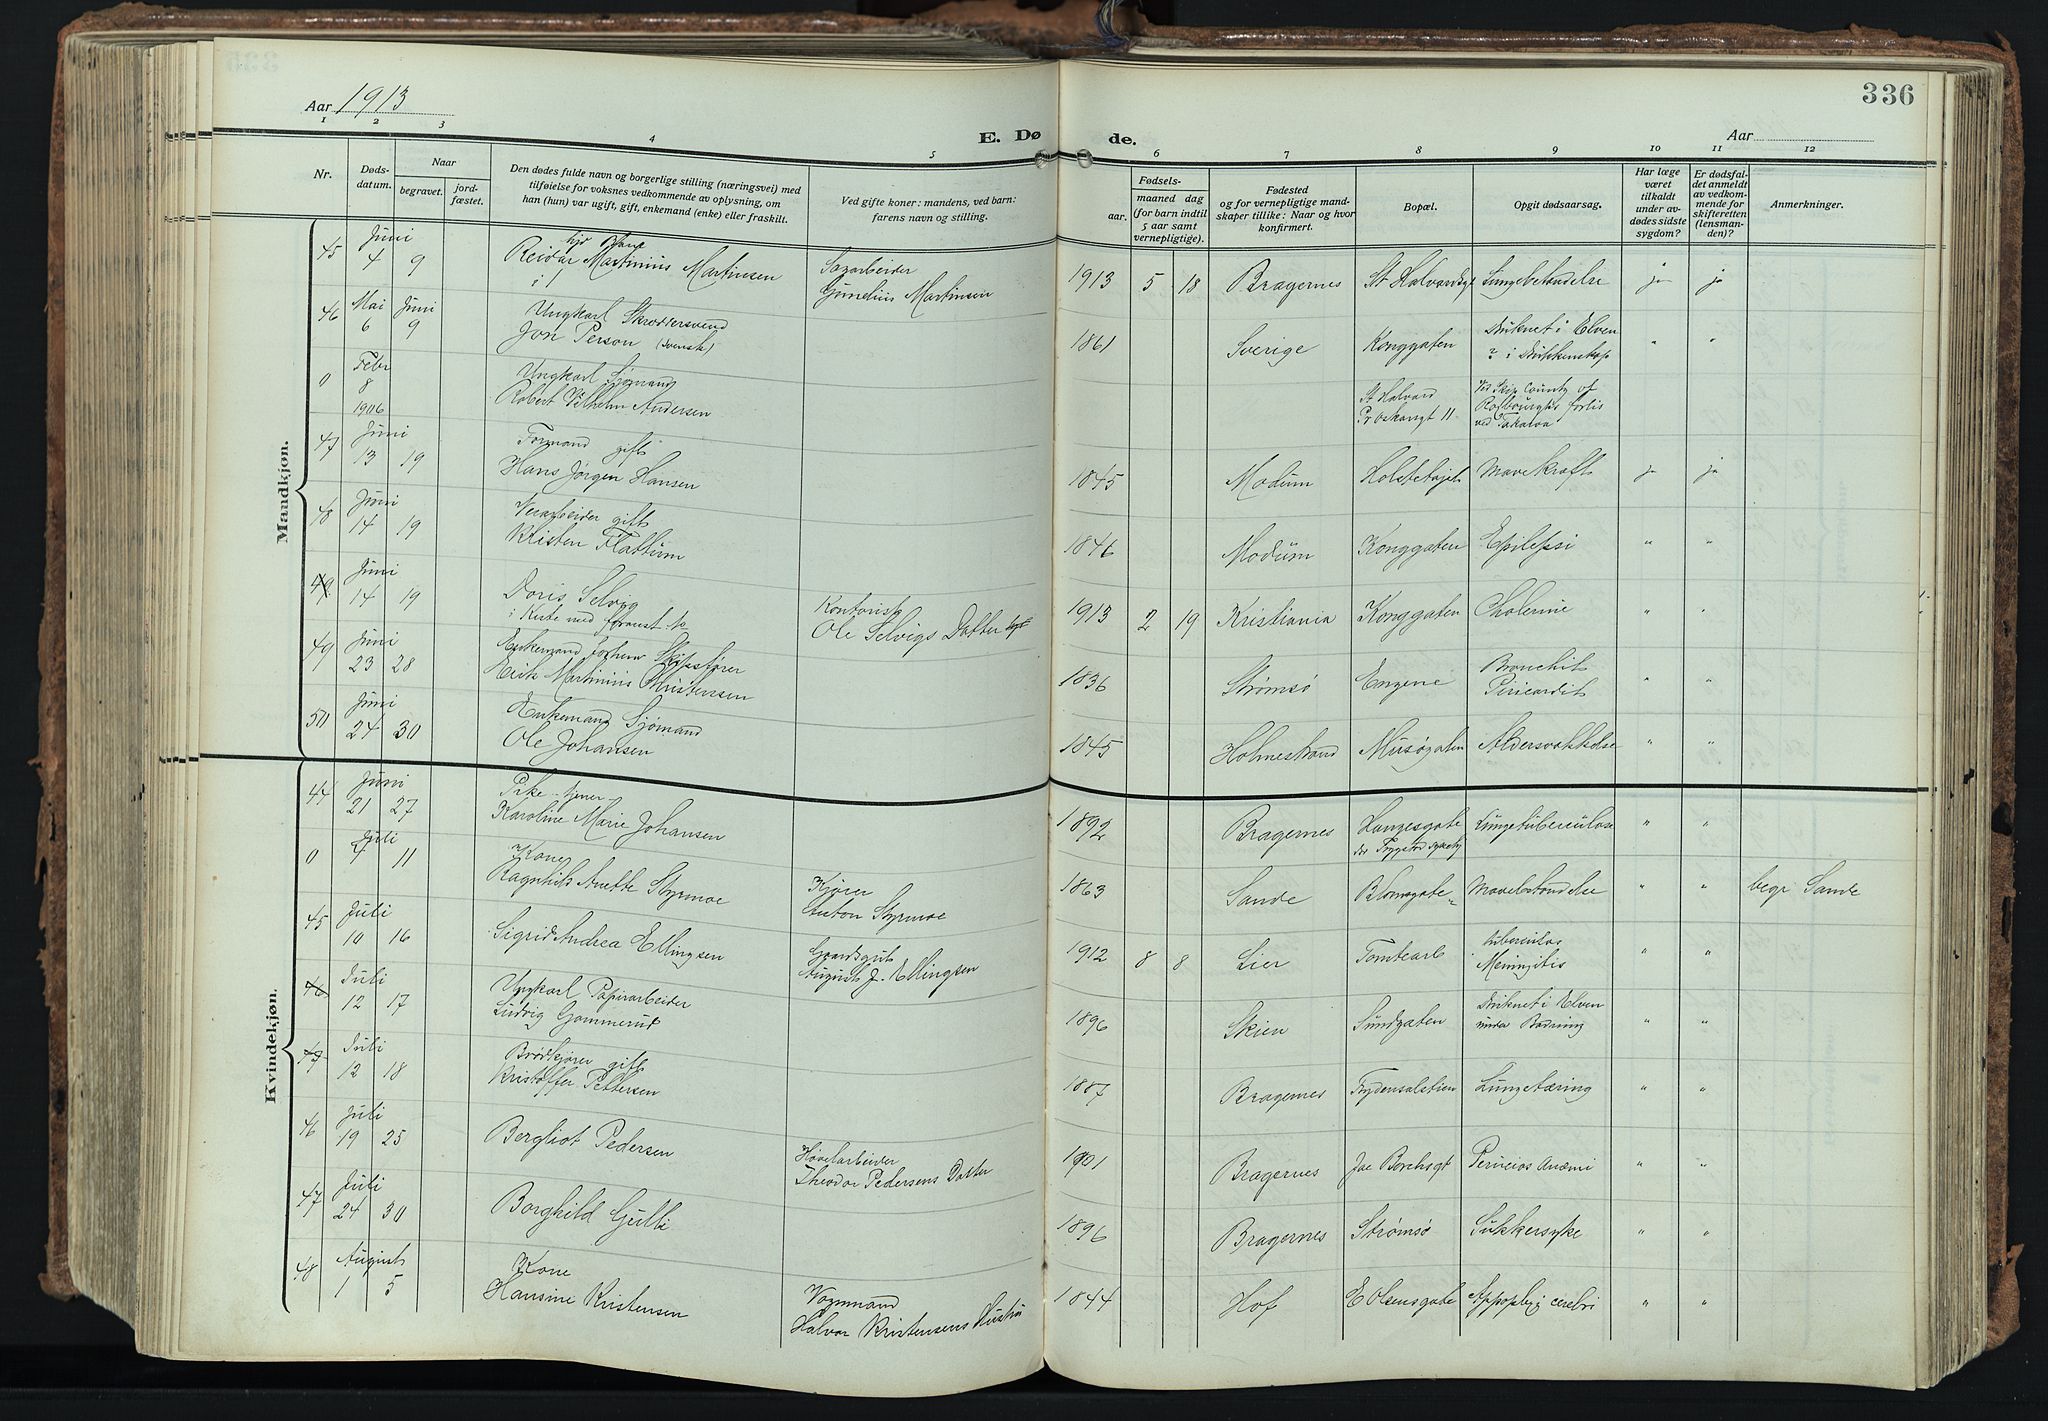 336
Aar 1913
Aar
E. Dø de.
1 2 3 4 5 6 7 8 9 10 11 12
Nr.
Døds-
datum.
Naar
begravet.
jord-
fæstet.
Den dødes fulde navn og borgerlige stilling (næringsvei) med
tilføielse for voksnes vedkommende av oplysning, om
han (hun) var ugift, gift, enkemand (enke) eller fraskilt.
Ved gifte koner: mandens, ved barn:
farens navn og stilling.
Fødsels-
aar.
maaned dag
(for barn indtil
5 aar samt
vernepligtige).
Fødested
og for vernepligtige mand-
skaper tillike: Naar og hvor
konfirmert.
Bopæl.
Opgit dødsaarsag.
Har læge
været
tilkaldt
under av-
dødes sidste
sygdom?
Er dødsfal-
det anmeldt
av vedkom-
mende for
skifteretten
(lensman-
den)?
Anmerkninger.
Mandkjøn.
45 Juni 4 9
Reidar Martinius Martinsen
Sagarbeider
Gunelius Martinsen
1913 5 18 Bragernes St Halvardsgt Lungebetændelse ja ja
46 Mai 6 Juni 9
Ungkarl Skræddersvend
Jon Person (svensk)
1861 Sverige Konggaten
Druknet i Elven
? i Drukkenskap " "
0 Febr 8 1906
Ungkarl Sjømand
Robert Vilhelm Andersen
St Halvard
Pr Oskarsgt 11
Ved Skip County of
Roxbourghs forlis
ved Takaroa
47 Juni 13 19
Formand gift
Hans Jørgen Hansen
1845 Modum Mavekræft ja ja
48 Juni 14 19
gift
Kristen Flattum
1846 Modum Konggaten Epilepsi " "
49 Juni 14 19
Doris Selvig
i Kiste med
Kontorist
Ole Selvigs Datter
1913 2 19 Kristiania Konggaten Cholerine " "
49 Juni 23 28
Enkemand forhenv Skipsfører
Erik Martinius Christensen
1836 Strømsø Engene
Bronchit
Pericardit " "
50 Juni 24 30
Enkemand Sjømand
Ole Johansen
1845 Holmestrand Aldersvækkelse " "
Kvindekjøn.
44 Juni 21 27
Pike tjener
Karoline Marie Johansen
1892 Bragernes Langesgate Lungetuberculose " "
0 Juli 7 11
Kone
Ragnhild Anette Styrmoe
Kjører
Anton Styrmoe
1863 Sande Blomsgate Mavebetændelse " " begr Sande
45 Juli 10 16
Sigrid Andrea Ellingsen
Gaardsgut
August J. Ellingsen
1912 8 8 Lier
tuberculøs
Meningitis " "
46 Juli 12 17
Ungkarl Papirarbeider
Ludvig Gommerud
1896 Skien Sundgaten
Druknet i Elven
under Badning " "
47 Juli 12 18
Brødkjører gift
Kristoffer Pettersen
1887 Bragernes Frydensalstien Lungetæring " "
46 Juli 19 25
Bergliot Pedersen
Høvelarbeider
Theodor Pedersens Datter
1901 Bragernes Jac Borchsgt Pernicios Anæmi " "
47 Juli 24 30
Borghild Gulli
1896 Bragernes Strømsø Sukkersyke " "
48 August 1 5
Kone
Hansine Kristensen
Vognmand
Halvor Kristensens Hustru
1844 Hof E Olsensgate Appoplexi cerebri " "